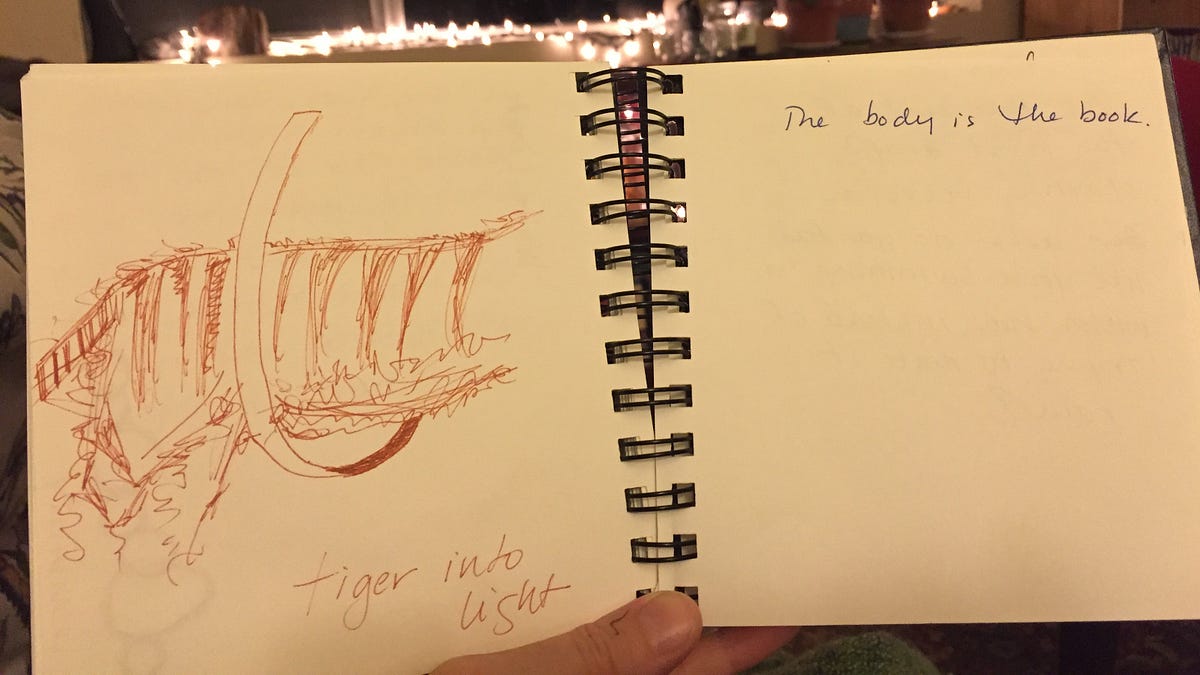 tiger into
light
The body is the book.